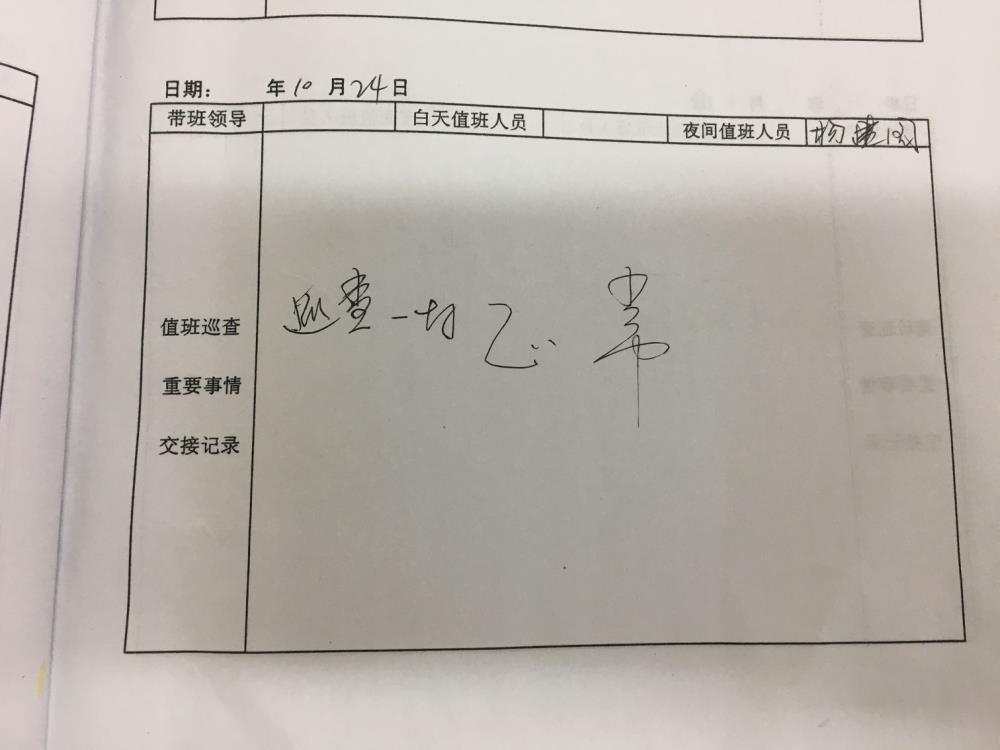 日期： 年10月24日
带班领导 白天值班人员 夜间值班人员
值班巡查 巡查一切正常
重要事情
交接记录